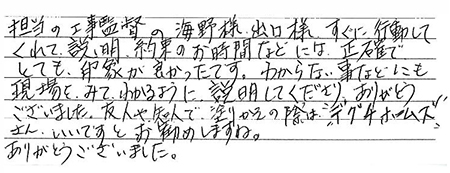 担当の工事監督の海野様、出口様、すぐに行動して
くれて、説明、約束のお時間などには、正確で
とても、印象が良かったです。わからない事などにも
現場をみて、わかるように説明してくださり、ありがとう
ございました。友人や知人で、塗りかえの際は"デグチホームズ"
さん、いいですとお勧めしますね。
ありがとうございました。